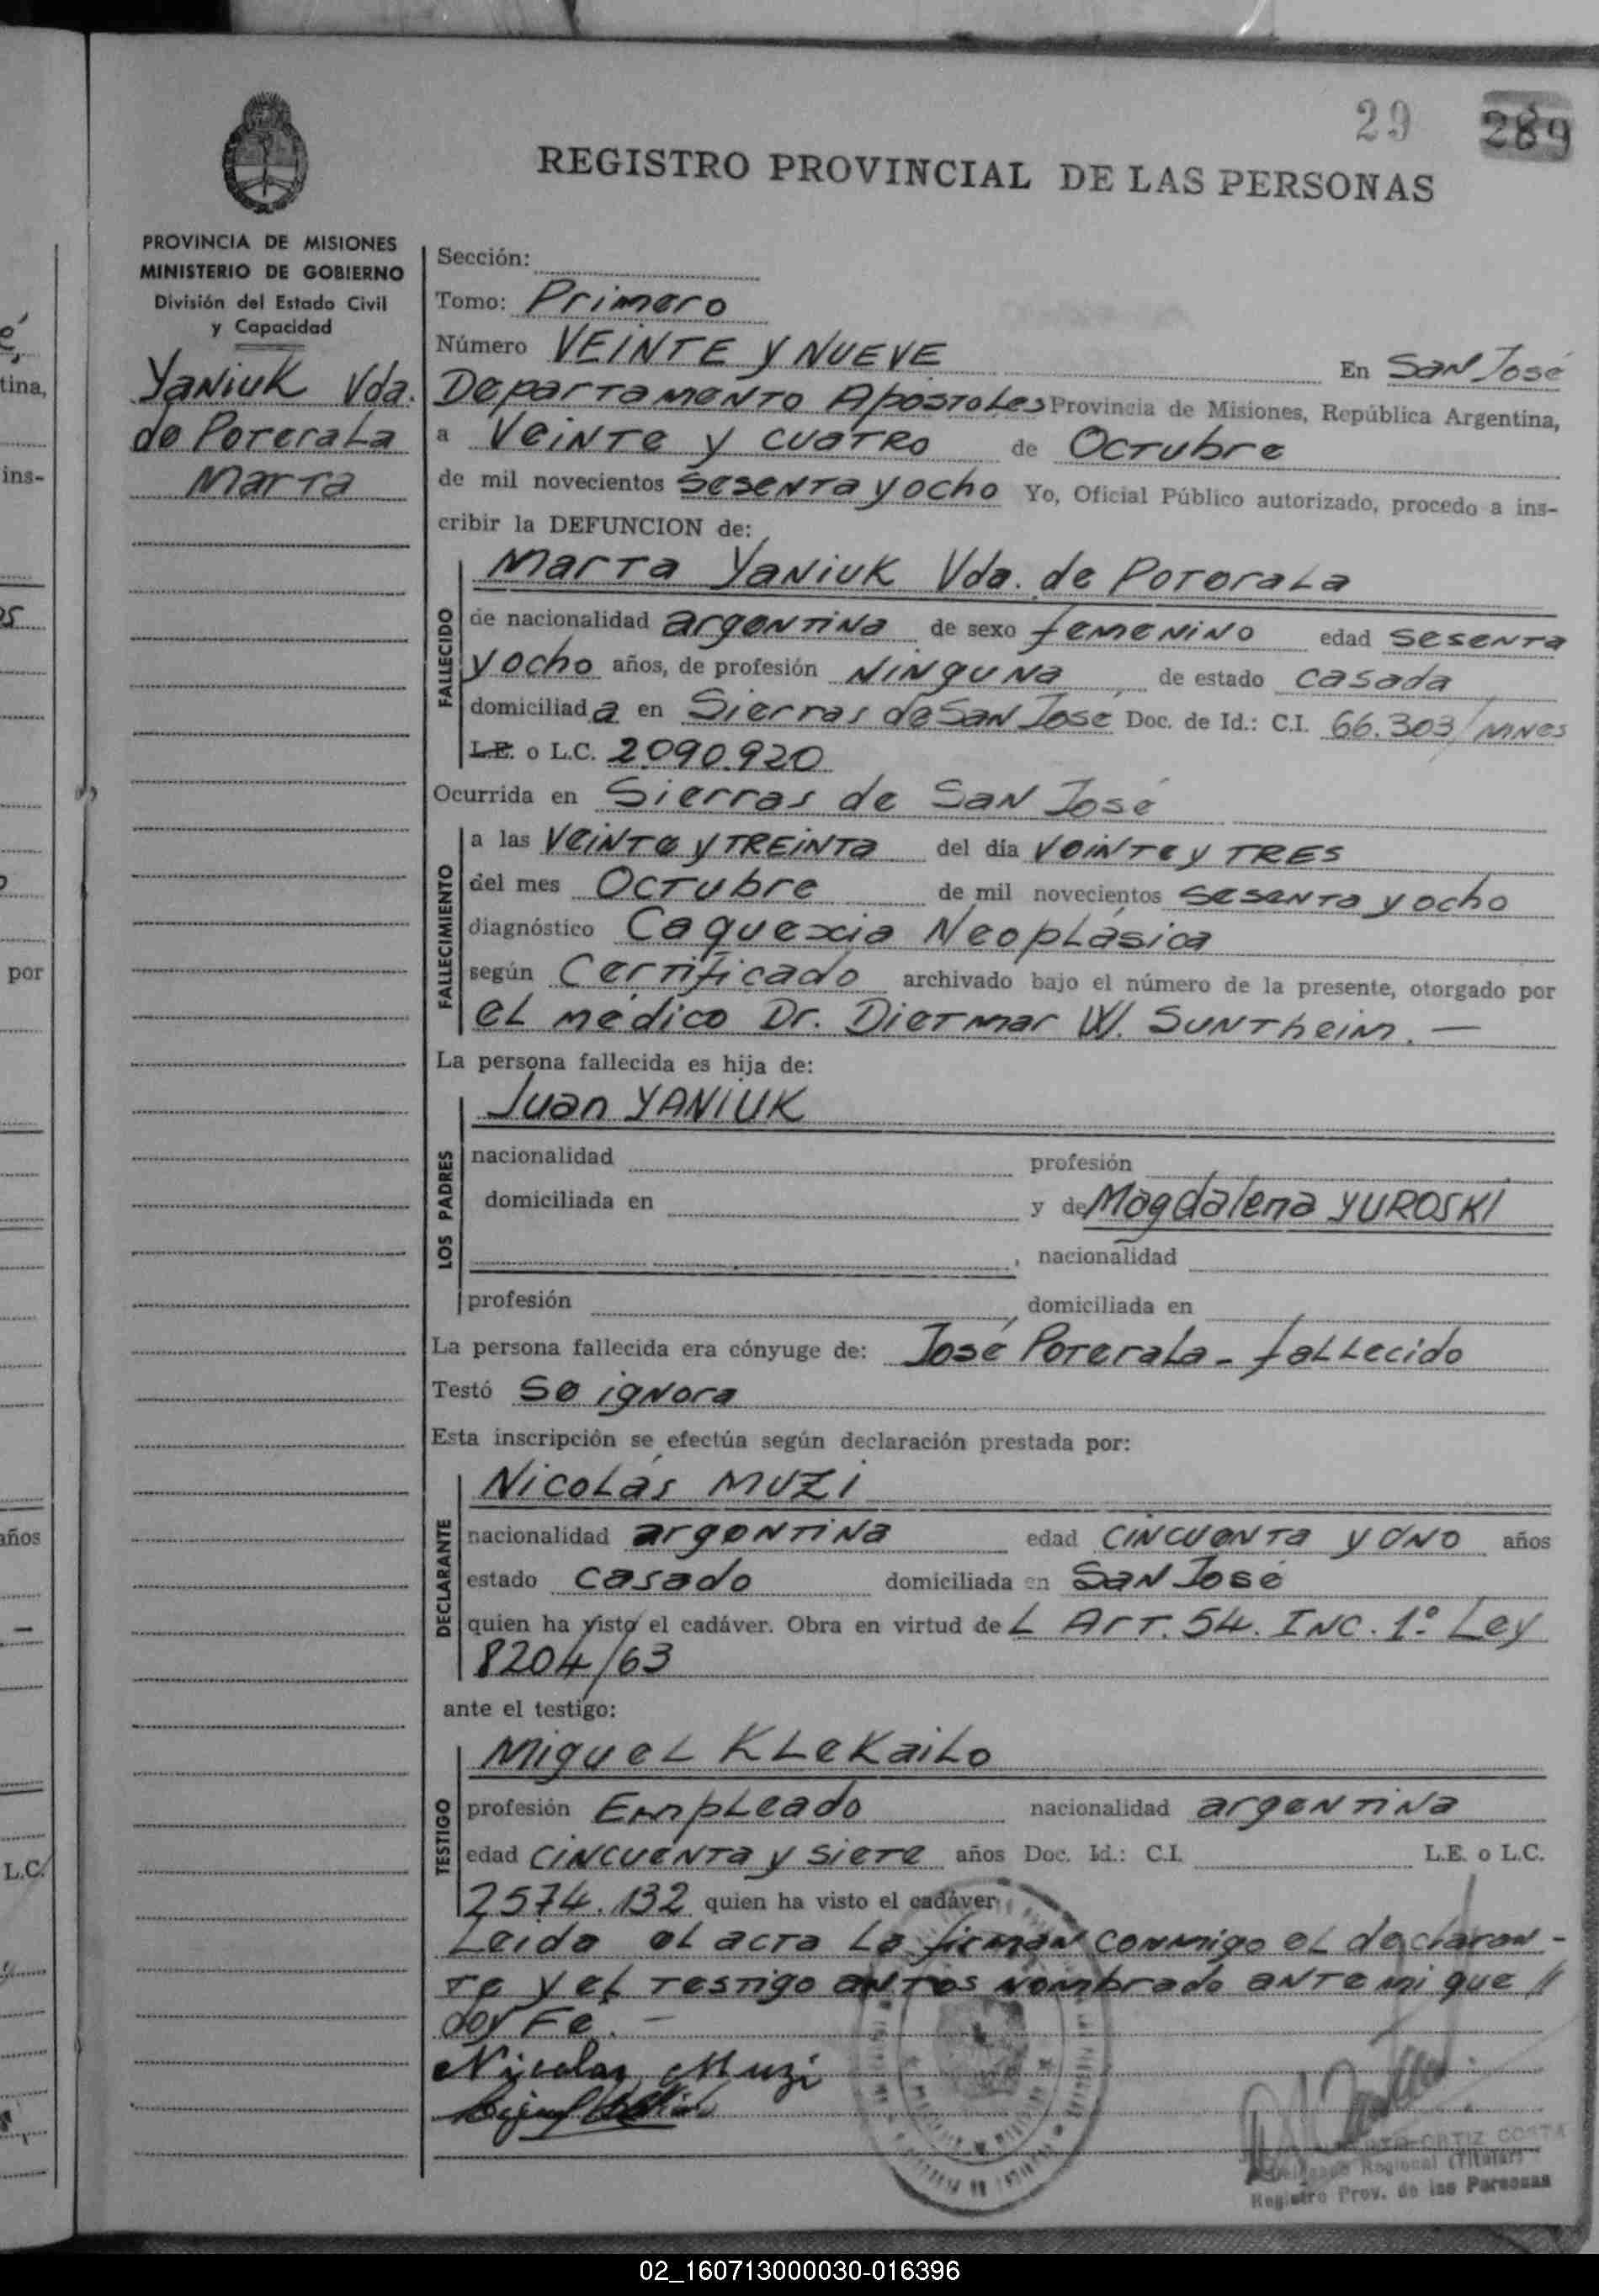 29 289
REGISTRO PROVINCIAL DE LAS PERSONAS
PROVINCIA DE MISIONES
MINISTERIO DE GOBIERNO
División del Estado Civil
y Capacidad
Yaniuk Vda.
de Poterala
Marta
Sección:
Tomo: Primero
Número VEINTE Y NUEVE En San José
Departamento Apostoles Provincia de Misiones, República Argentina,
a Veinte y cuatro de Octubre
de mil novecientos sesenta y ocho Yo, Oficial Público autorizado, procedo a ins-
cribir la DEFUNCION de:
FALLECIDO
Marta Yaniuk Vda. de Poterala
de nacionalidad argentina de sexo femenino edad sesenta
y ocho años, de profesión Ninguna de estado casada
domiciliada en Sierras de San José Doc. de Id.: C.I. 66.303/Mnes
L.E. o L.C. 2.090.920
Ocurrida en Sierras de San José
FALLECIMIENTO
a las Veinte y TREINTA del día Veinte y TRES
del mes Octubre de mil novecientos sesenta y ocho
diagnóstico Caquexia Neoplásica
según Certificado archivado bajo el número de la presente, otorgado por
el médico Dr. Dietmar W. Suntheim. —
La persona fallecida es hija de:
LOS PADRES
Juan YANIUK
nacionalidad profesión
domiciliada en y de Magdalena YUROSKI
, nacionalidad
profesión , domiciliada en
La persona fallecida era cónyuge de: José Poterala - fallecido
Testó Se ignora
Esta inscripción se efectúa según declaración prestada por:
DECLARANTE
Nicolás MUZI
nacionalidad argentina edad cincuenta y uno años
estado casado domiciliada en San José
quien ha visto el cadáver. Obra en virtud de L Art. 54. Inc. 1º Ley
8204/63
ante el testigo:
TESTIGO
Miguel Klekailo
profesión Empleado nacionalidad argentina
edad cincuenta y siete años Doc. Id.: C.I. L.E. o L.C.
2574.132 quien ha visto el cadáver
Leida el acta la firman conmigo el declaran-
te y el testigo antes nombrado ante mi que //
doy Fe. —
Nicolas Muzi
ORTIZ COSTA
Delegado Regional (Titular)
Registro Prov. de las Personas
02_160713000030-016396